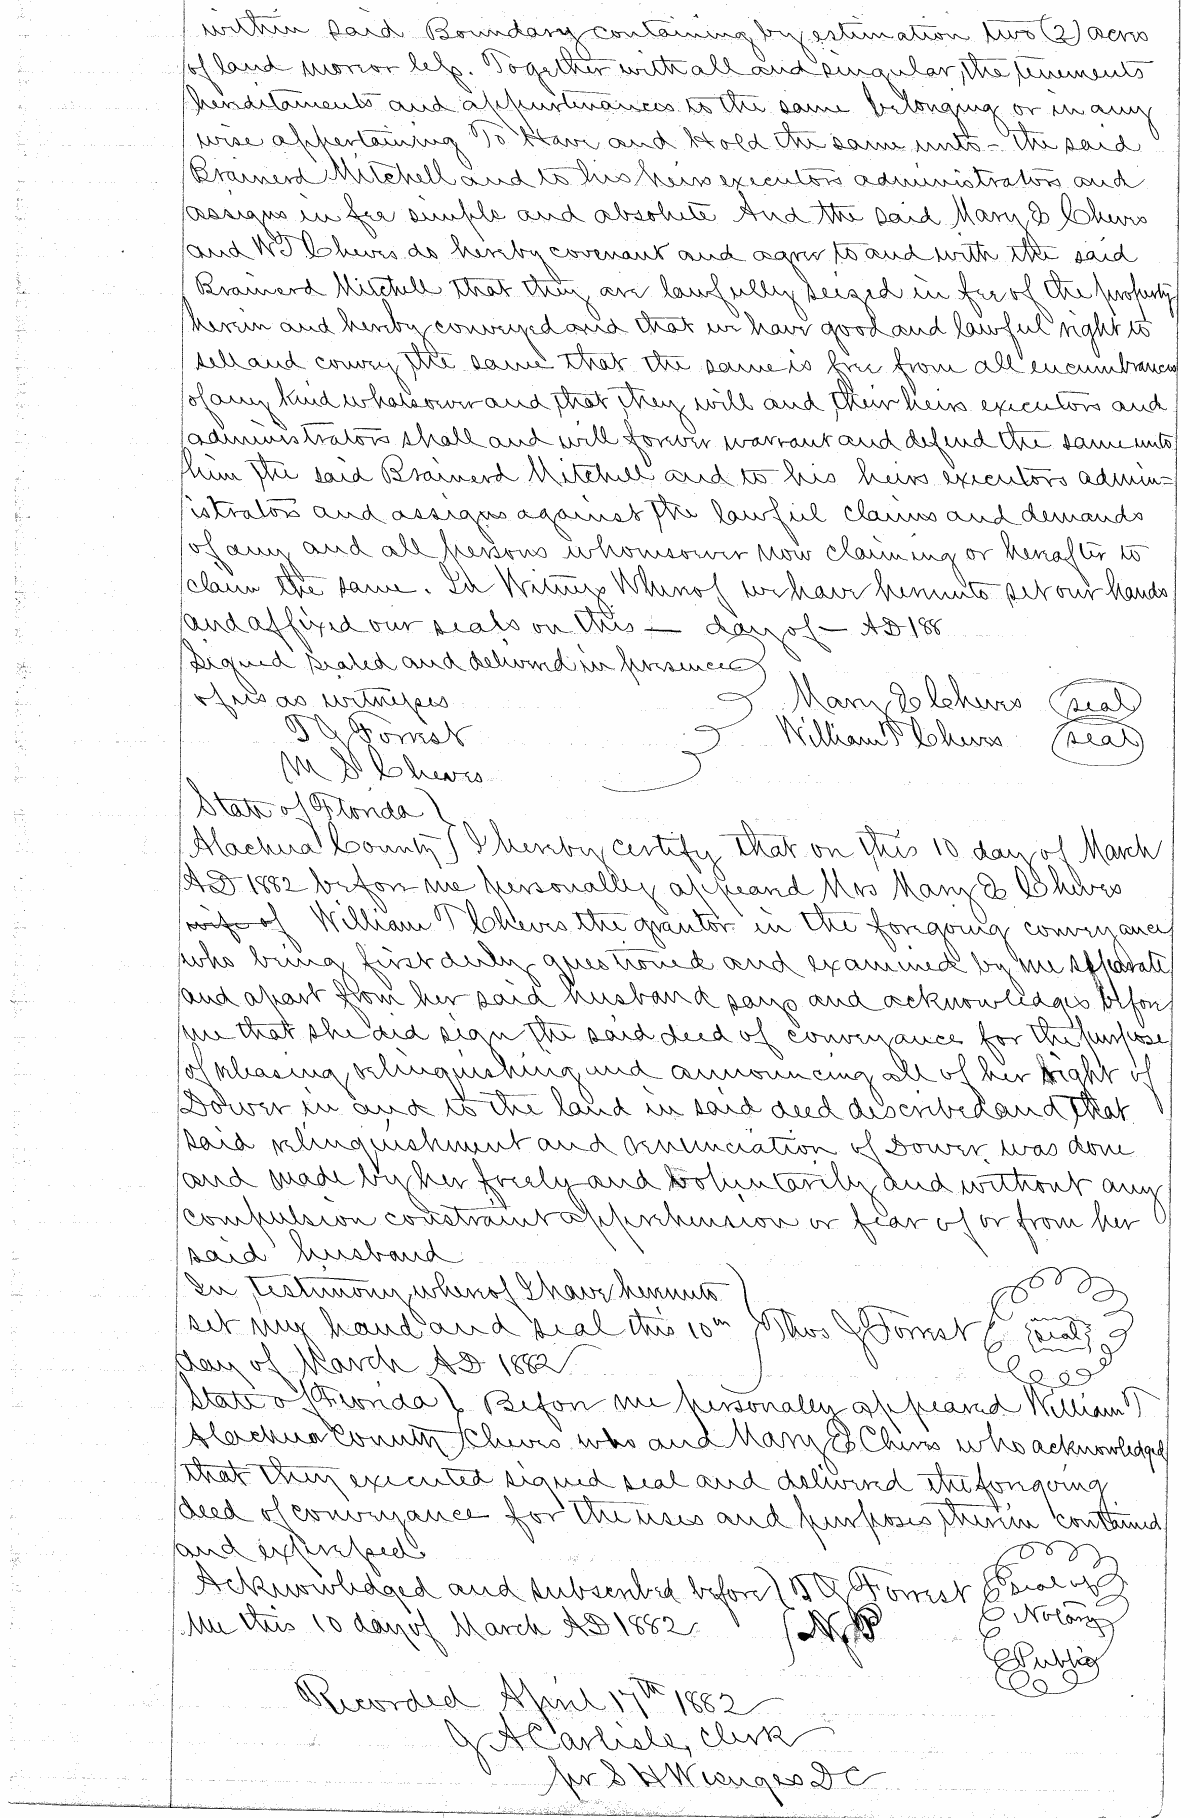 within said Boundary containing by estimation two (2) acres
of land more or less. Together with all and singular, the tenements
hereditaments and appurtenances to the same belonging or in any
wise appertaining To Have and Hold the same unto - the said
Brainerd Mitchell and to his heirs executors administrators and
assigns in fee simple and absolute And the said Mary E Cheves
and W T Cheves do hereby covenant and agree to and with the said
Brainerd Mitchell that they are lawfully seized in fee of the property
herein and hereby conveyed and that we have good and lawful right to
sell and convey the same that the same is free from all encumbrances
of any kind whatsoever and that they will and their heirs executors and
administrators shall and will forever warrant and defend the same unto
him the said Brainerd Mitchell and to his heirs executors admin=
istrators and assigns against the lawful claims and demands
of any and all persons whomsoever now claiming or hereafter to
claim the same. In Witness Whereof we have hereunto set our hands
and affixed our seals on this — day of — AD 188
Signed sealed and delivered in presence
of us as witnesses
Mary E Cheves (seal)
T J Forrest
William T Cheves (seal)
M S Cheves
State of Florida }
Alachua County } I hereby certify that on this 10 day of March
AD 1882 before me personally appeared Mrs Mary E Cheves
wife of William T Cheves the grantor in the foregoing conveyance
who being first duly questioned and examined by me separate
and apart from her said husband says and acknowledges before
me that she did sign the said deed of conveyance for the purpose
of releasing relinquishing and announcing all of her right of
Dower in and to the land in said deed described and that
said relinquishment and renunciation of Dower was done
and made by her freely and voluntarily and without any
compulsion constraint apprehension or fear of or from her
said husband
In testimony whereof I have hereunto
set my hand and seal this 10th } Thos J Forrest (seal)
day of March AD 1882
State of Florida } Before me personally appeared William T
Alachua County } Cheves who and Mary E Cheves who acknowledged
that they executed signed seal and delivered the foregoing
deed of conveyance for the uses and purposes therein contained
and expressed
Acknowledged and subscribed before } T J Forrest
me this 10 day of March AD 1882 { N P
Seal of
Notary
Public
Recorded April 17th 1882
J A Carlisle, clerk
per S H Wienges D C